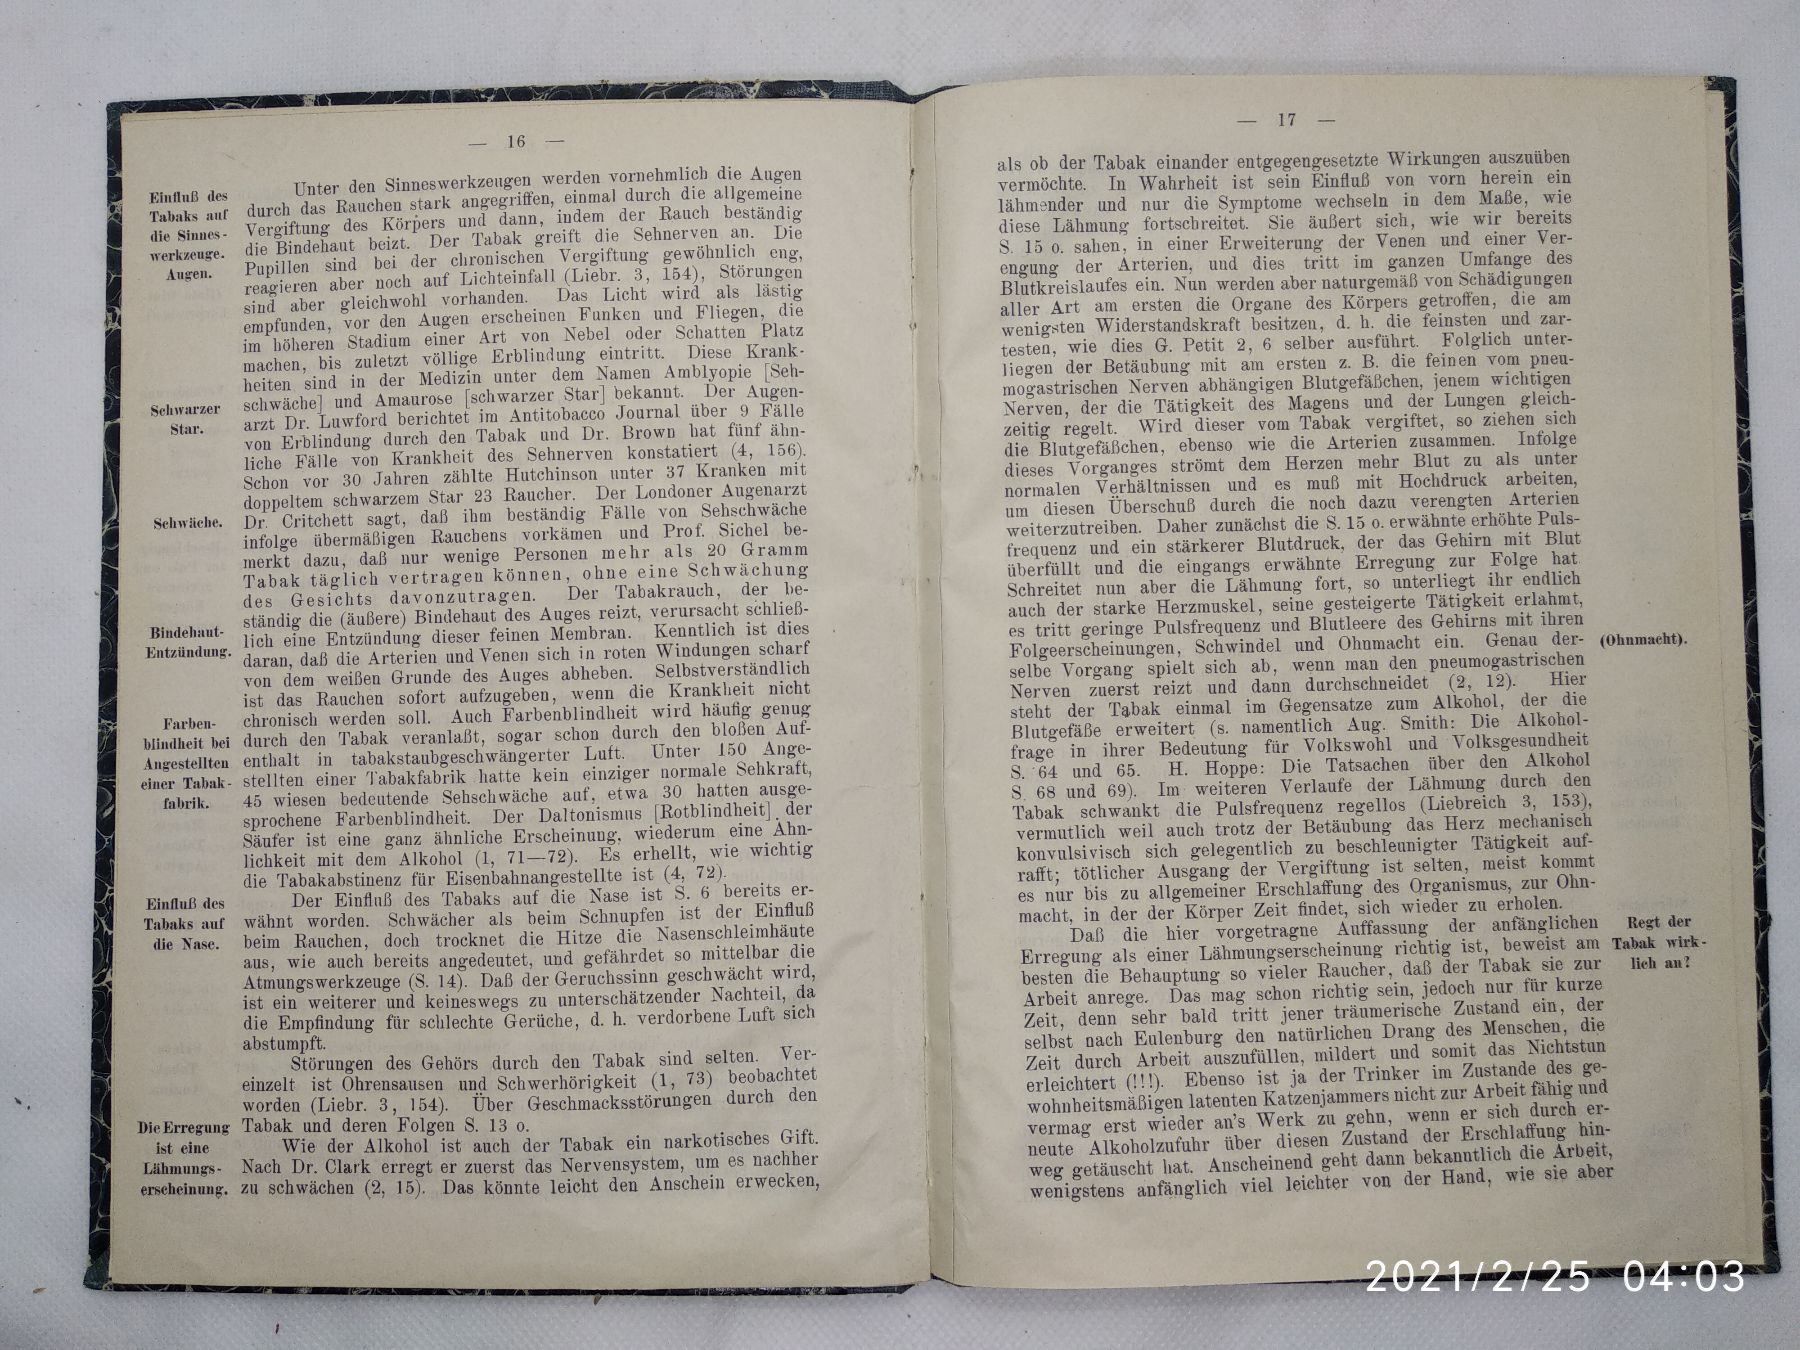 — 16 —
Einfluß des
Tabaks auf
die Sinnes-
werkzeuge.
Augen.
Unter den Sinneswerkzeugen werden vornehmlich die Augen
durch das Rauchen stark angegriffen, einmal durch die allgemeine
Vergiftung des Körpers und dann, indem der Rauch beständig
die Bindehaut beizt. Der Tabak greift die Sehnerven an. Die
Pupillen sind bei der chronischen Vergiftung gewöhnlich eng,
reagieren aber noch auf Lichteinfall (Liebr. 3, 154), Störungen
sind aber gleichwohl vorhanden. Das Licht wird als lästig
empfunden, vor den Augen erscheinen Funken und Fliegen, die
im höheren Stadium einer Art von Nebel oder Schatten Platz
machen, bis zuletzt völlige Erblindung eintritt. Diese Krank-
heiten sind in der Medizin unter dem Namen Amblyopie [Seh-
Schwarzer
Star.
schwäche] und Amaurose [schwarzer Star] bekannt. Der Augen-
arzt Dr. Luwford berichtet im Antitobacco Journal über 9 Fälle
von Erblindung durch den Tabak und Dr. Brown hat fünf ähn-
liche Fälle von Krankheit des Sehnerven konstatiert (4, 156).
Schon vor 30 Jahren zählte Hutchinson unter 37 Kranken mit
doppeltem schwarzem Star 23 Raucher. Der Londoner Augenarzt
Schwäche.
Dr. Critchett sagt, daß ihm beständig Fälle von Sehschwäche
infolge übermäßigen Rauchens vorkämen und Prof. Sichel be-
merkt dazu, daß nur wenige Personen mehr als 20 Gramm
Tabak täglich vertragen können, ohne eine Schwächung
des Gesichts davonzutragen. Der Tabakrauch, der be-
ständig die (äußere) Bindehaut des Auges reizt, verursacht schließ-
Bindehaut-
Entzündung.
lich eine Entzündung dieser feinen Membran. Kenntlich ist dies
daran, daß die Arterien und Venen sich in roten Windungen scharf
von dem weißen Grunde des Auges abheben. Selbstverständlich
ist das Rauchen sofort aufzugeben, wenn die Krankheit nicht
Farben-
blindheit bei
Angestellten
einer Tabak-
fabrik.
chronisch werden soll. Auch Farbenblindheit wird häufig genug
durch den Tabak veranlaßt, sogar schon durch den bloßen Auf-
enthalt in tabakstaubgeschwängerter Luft. Unter 150 Ange-
stellten einer Tabakfabrik hatte kein einziger normale Sehkraft,
45 wiesen bedeutende Sehschwäche auf, etwa 30 hatten ausge-
sprochene Farbenblindheit. Der Daltonismus [Rotblindheit] der
Säufer ist eine ganz ähnliche Erscheinung, wiederum eine Ähn-
lichkeit mit dem Alkohol (1, 71—72). Es erhellt, wie wichtig
die Tabakabstinenz für Eisenbahnangestellte ist (4, 72).
Einfluß des
Tabaks auf
die Nase.
Der Einfluß des Tabaks auf die Nase ist S. 6 bereits er-
wähnt worden. Schwächer als beim Schnupfen ist der Einfluß
beim Rauchen, doch trocknet die Hitze die Nasenschleimhäute
aus, wie auch bereits angedeutet, und gefährdet so mittelbar die
Atmungswerkzeuge (S. 14). Daß der Geruchssinn geschwächt wird,
ist ein weiterer und keineswegs zu unterschätzender Nachteil, da
die Empfindung für schlechte Gerüche, d. h. verdorbene Luft sich
abstumpft.
Störungen des Gehörs durch den Tabak sind selten. Ver-
einzelt ist Ohrensausen und Schwerhörigkeit (1, 73) beobachtet
worden (Liebr. 3, 154). Über Geschmacksstörungen durch den
Tabak und deren Folgen S. 13 o.
Die Erregung
ist eine
Lähmungs-
erscheinung.
Wie der Alkohol ist auch der Tabak ein narkotisches Gift.
Nach Dr. Clark erregt er zuerst das Nervensystem, um es nachher
zu schwächen (2, 15). Das könnte leicht den Anschein erwecken,
— 17 —
als ob der Tabak einander entgegengesetzte Wirkungen auszuüben
vermöchte. In Wahrheit ist sein Einfluß von vorn herein ein
lähmender und nur die Symptome wechseln in dem Maße, wie
diese Lähmung fortschreitet. Sie äußert sich, wie wir bereits
S. 15 o. sahen, in einer Erweiterung der Venen und einer Ver-
engung der Arterien, und dies tritt im ganzen Umfange des
Blutkreislaufes ein. Nun werden aber naturgemäß von Schädigungen
aller Art am ersten die Organe des Körpers getroffen, die am
wenigsten Widerstandskraft besitzen, d. h. die feinsten und zar-
testen, wie dies G. Petit 2, 6 selber ausführt. Folglich unter-
liegen der Betäubung mit am ersten z. B. die feinen vom pneu-
mogastrischen Nerven abhängigen Blutgefäßchen, jenem wichtigen
Nerven, der die Tätigkeit des Magens und der Lungen gleich-
zeitig regelt. Wird dieser vom Tabak vergiftet, so ziehen sich
die Blutgefäßchen, ebenso wie die Arterien zusammen. Infolge
dieses Vorganges strömt dem Herzen mehr Blut zu als unter
normalen Verhältnissen und es muß mit Hochdruck arbeiten,
um diesen Überschuß durch die noch dazu verengten Arterien
weiterzutreiben. Daher zunächst die S. 15 o. erwähnte erhöhte Puls-
frequenz und ein stärkerer Blutdruck, der das Gehirn mit Blut
überfüllt und die eingangs erwähnte Erregung zur Folge hat
Schreitet nun aber die Lähmung fort, so unterliegt ihr endlich
auch der starke Herzmuskel, seine gesteigerte Tätigkeit erlahmt,
es tritt geringe Pulsfrequenz und Blutleere des Gehirns mit ihren
Folgeerscheinungen, Schwindel und Ohnmacht ein. Genau der-
(Ohnmacht).
selbe Vorgang spielt sich ab, wenn man den pneumogastrischen
Nerven zuerst reizt und dann durchschneidet (2, 12). Hier
steht der Tabak einmal im Gegensatze zum Alkohol, der die
Blutgefäße erweitert (s. namentlich Aug. Smith: Die Alkohol-
frage in ihrer Bedeutung für Volkswohl und Volksgesundheit
S. 64 und 65. H. Hoppe: Die Tatsachen über den Alkohol
S. 68 und 69). Im weiteren Verlaufe der Lähmung durch den
Tabak schwankt die Pulsfrequenz regellos (Liebreich 3, 153),
vermutlich weil auch trotz der Betäubung das Herz mechanisch
konvulsivisch sich gelegentlich zu beschleunigter Tätigkeit auf-
rafft; tötlicher Ausgang der Vergiftung ist selten, meist kommt
es nur bis zu allgemeiner Erschlaffung des Organismus, zur Ohn-
macht, in der der Körper Zeit findet, sich wieder zu erholen.
Regt der
Tabak wirk-
lich an?
Daß die hier vorgetragne Auffassung der anfänglichen
Erregung als einer Lähmungserscheinung richtig ist, beweist am
besten die Behauptung so vieler Raucher, daß der Tabak sie zur
Arbeit anrege. Das mag schon richtig sein, jedoch nur für kurze
Zeit, denn sehr bald tritt jener träumerische Zustand ein, der
selbst nach Eulenburg den natürlichen Drang des Menschen, die
Zeit durch Arbeit auszufüllen, mildert und somit das Nichtstun
erleichtert (!!!). Ebenso ist ja der Trinker im Zustande des ge-
wohnheitsmäßigen latenten Katzenjammers nicht zur Arbeit fähig und
vermag erst wieder an's Werk zu gehn, wenn er sich durch er-
neute Alkoholzufuhr über diesen Zustand der Erschlaffung hin-
weg getäuscht hat. Anscheinend geht dann bekanntlich die Arbeit,
wenigstens anfänglich viel leichter von der Hand, wie sie aber
2021/2/25 04:03